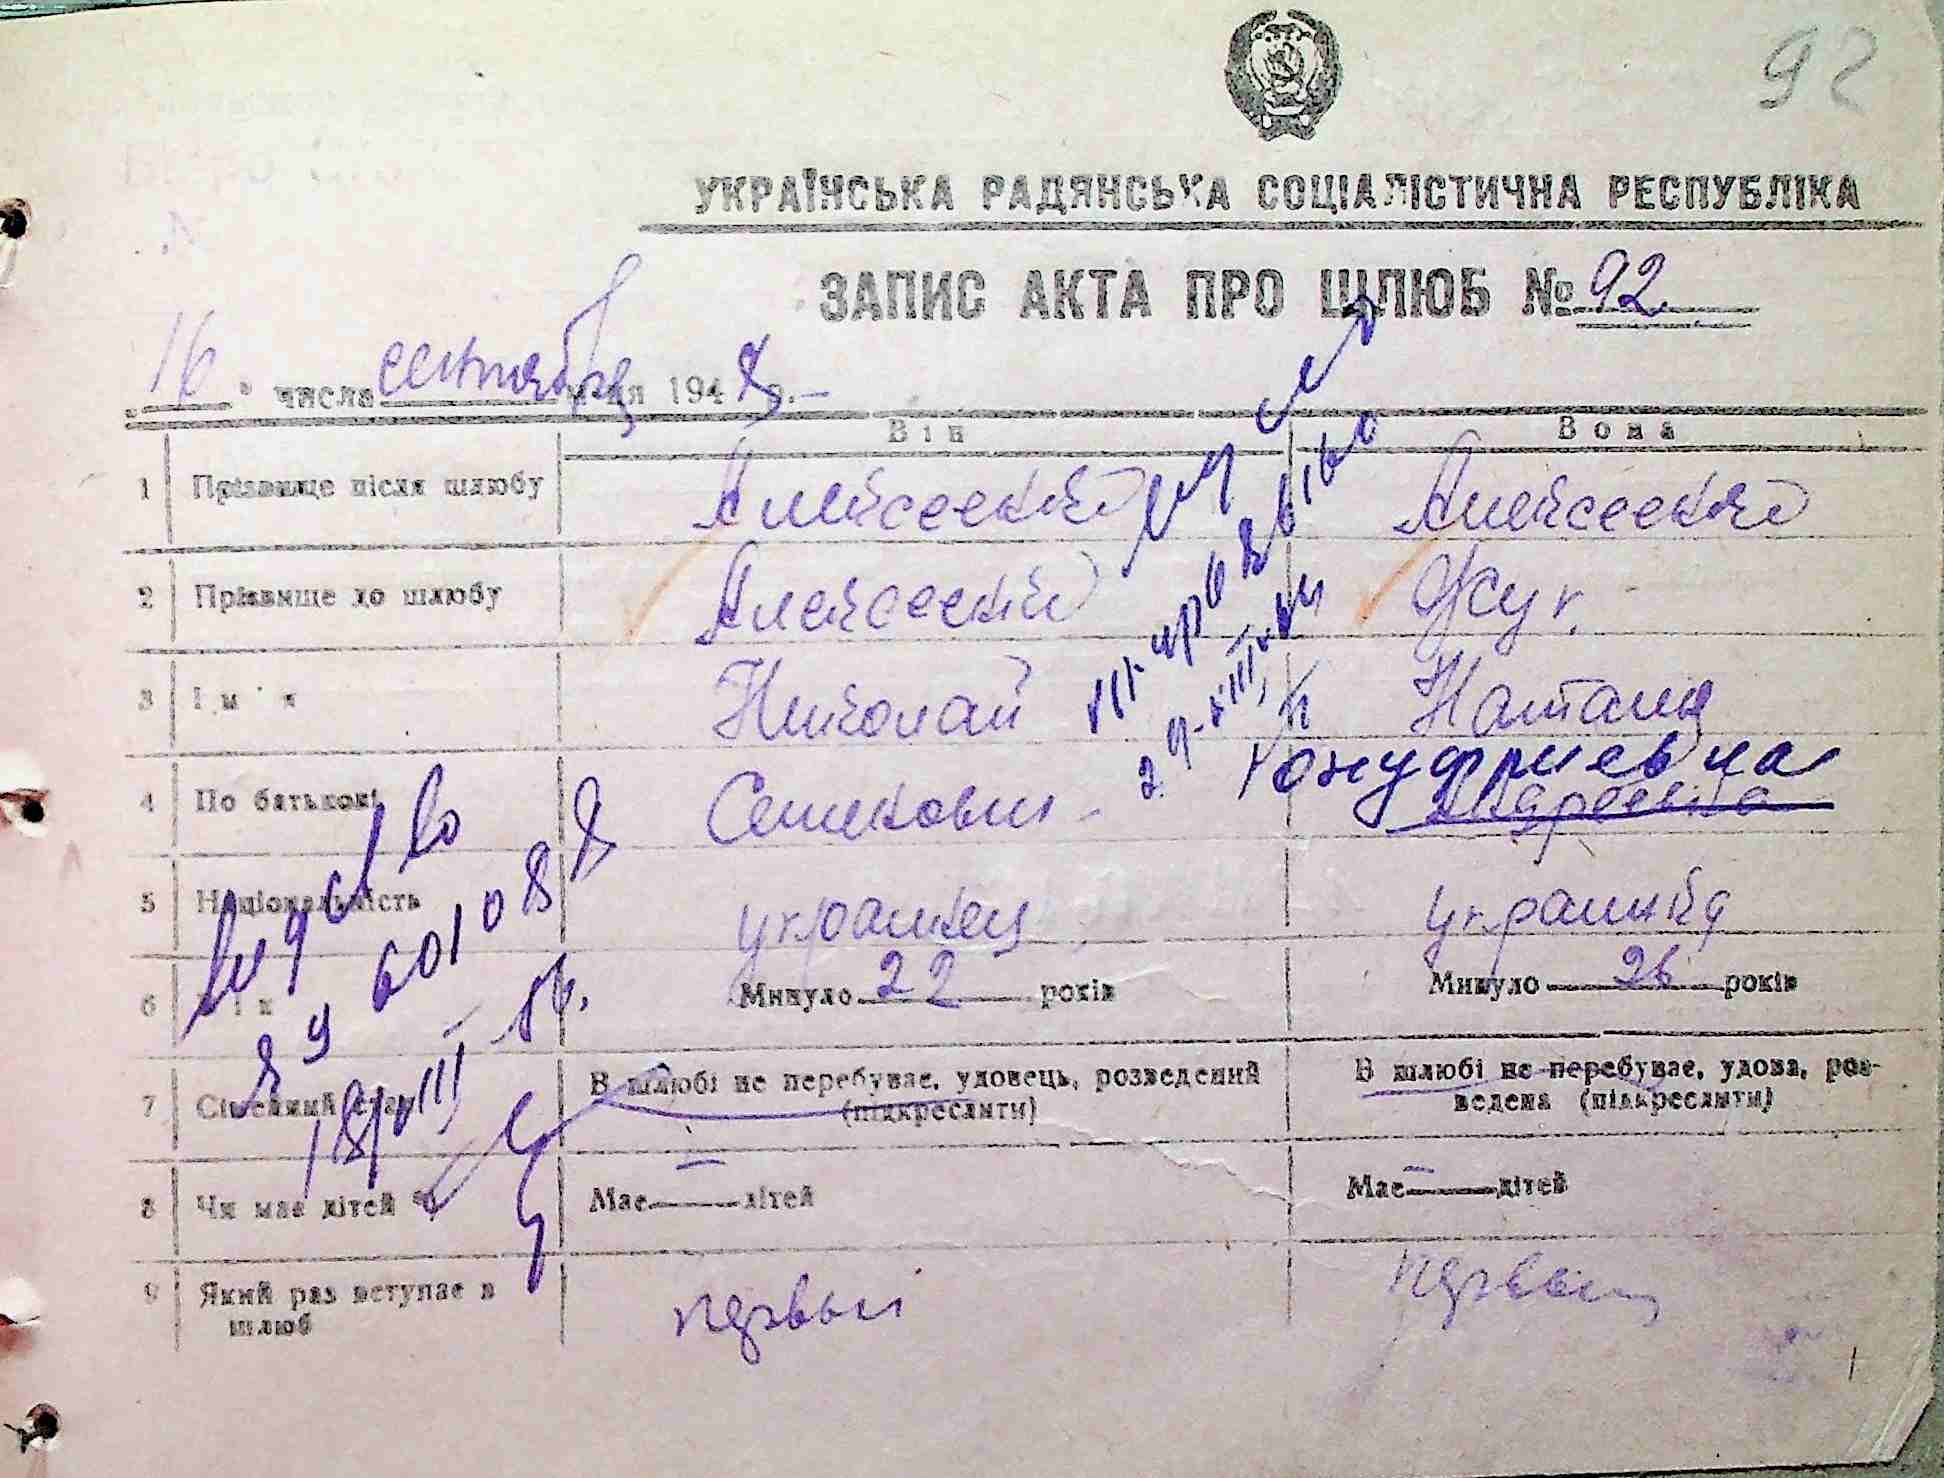 92
УКРАЇНСЬКА РАДЯНСЬКА СОЦІАЛІСТИЧНА РЕСПУБЛІКА
ЗАПИС АКТА ПРО ШЛЮБ № 92
16 " числа сентября м-ця 194 р.
Він Вона
1 Прізвище після шлюбу Алексеенко Алексеенко
2 Прізвище до шлюбу Алексеенко Жук
3 Ім'я Николай Наталия
4 По батькові Семенович Онуфриевна
5 Національність украинец украинка
6 Вік Минуло 22 років Минуло 26 років
7 Сімейний стан В шлюбі не перебуває, удовець, розведений (підкреслити) В шлюбі не перебуває, удова, роз-
ведена (підкреслити)
8 Чи має дітей Має — дітей Має — дітей
9 Який раз вступає в шлюб первый первый